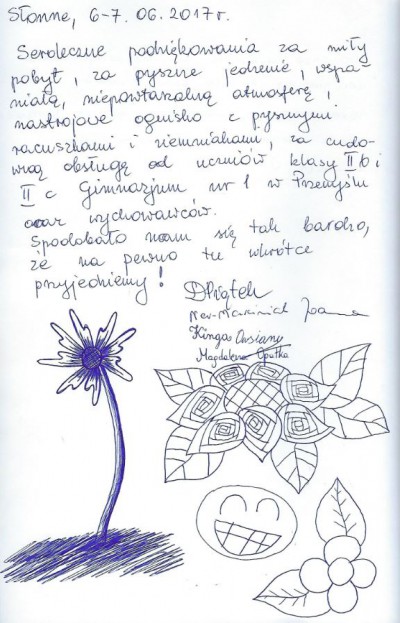 Słonne, 6-7. 06. 2017 r.
Serdeczne podziękowania za miły
pobyt, za pyszne jedzenie, wspa-
niałą, niepowtarzalną atmosferę,
nastrojowe ognisko z pysznymi
racuszkami i ziemniakami, za cudo-
wną obsługę od uczniów klasy II b i
II c Gimnazjum nr 1 w Przemyślu
oraz wychowawców.
Spodobało nam się tak bardzo,
że na pewno tu wkrótce
przyjedziemy!
DPiątek
Joanna
Kinga
Magdalena Opałka